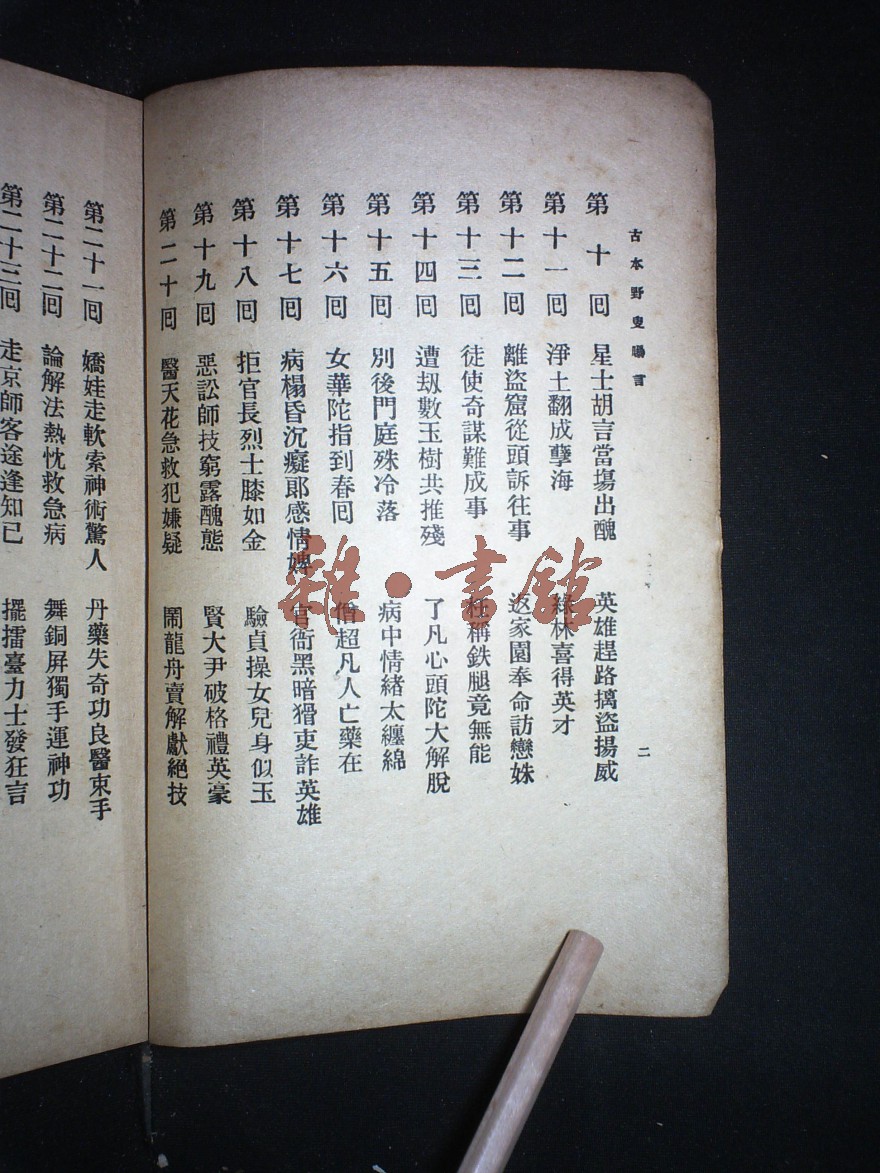 古本野叟曝言
二
第十回 星士胡言當塲出醜 英雄趕路擒盜揚威
第十一回 淨土翻成孽海 綠林喜得英才
第十二回 離盜窟從頭訴往事 返家園奉命訪戀姝
第十三回 徒使奇謀難成事 枉稱鉄腿竟無能
第十四回 遭刼數玉樹共推殘 了凡心頭陀大解脫
第十五回 別後門庭殊冷落 病中情緒太纏綿
第十六回 女華陀指到春回 僧超凡人亡藥在
第十七回 病榻昏沉癡郎感情婢 官衙黑暗猾吏詐英雄
第十八回 拒官長烈士膝如金 驗貞操女兒身似玉
第十九回 惡訟師技窮露醜態 賢大尹破格禮英豪
第二十回 醫天花急救犯嫌疑 鬧龍舟賣解獻絕技
第二十一回 嬌娃走軟索神術驚人 丹藥失奇功良醫束手
第二十二回 論解法熱忱救急病 舞銅屏獨手運神功
第二十三回 走京師客途逢知已 擺擂臺力士發狂言
雜·書舘